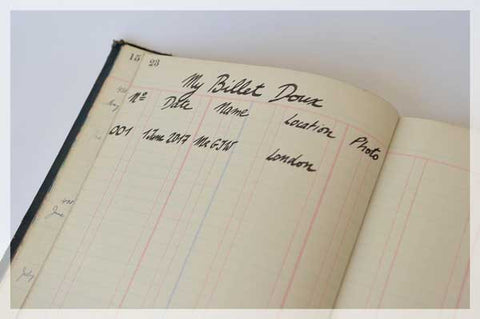 15 23
My Billet Doux
Nº Date Name Location Photo
001 1 June 2017 Mr GJW London
May
June
July